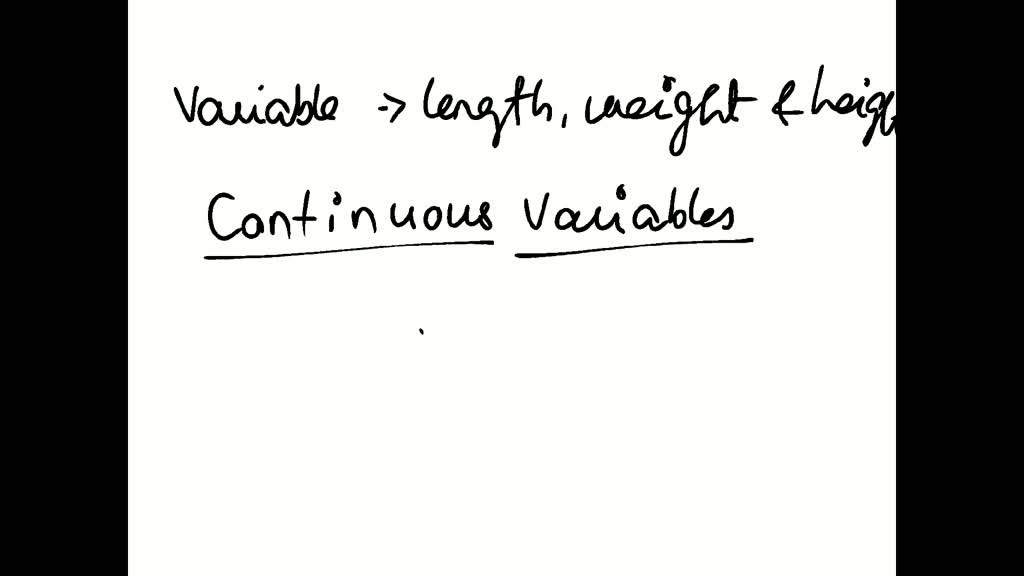 Variable -> length, weight & heigh
Continuous Variables